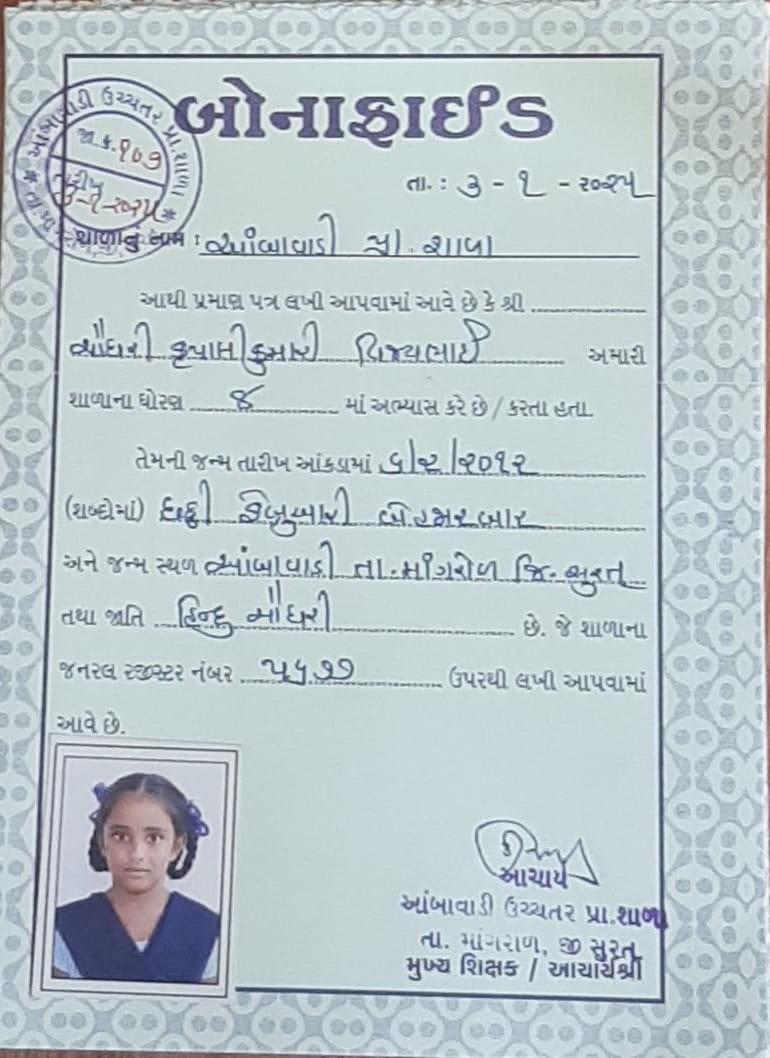 બોનાફાઈડ
આંબાવાડી ઉચ્ચતર પ્રા.શાળા
જા.ક્ર. ૧૦૭
તારીખ
૩-૧-૨૦૨૫
તા.: ૩ - ૧ - ૨૦૨૫
શાળાનું નામ : આંબાવાડી પ્રા. શાળા
આથી પ્રમાણ પત્ર લખી આપવામાં આવે છે કે શ્રી
ચૌધરી કૃપાલીકુમારી વિજયભાઈ અમારી
શાળાના ધોરણ ૭ માં અભ્યાસ કરે છે / કરતા હતા
તેમની જન્મ તારીખ આંકડામાં ૬/૨/૨૦૧૨
(શબ્દોમાં) છઠ્ઠી ફેબ્રુઆરી બે હજાર બાર
અને જન્મ સ્થળ આંબાવાડી તા.માંગરોળ જિ.સુરત
તથા જાતિ હિન્દુ ચૌધરી છે. જે શાળાના
જનરલ રજીસ્ટર નંબર ઉપરથી લખી આપવામાં
આવે છે.
આચાર્ય
આંબાવાડી ઉચ્ચતર પ્રા.શાળા
તા. માંગરોળ, જી સુરત
મુખ્ય શિક્ષક / આચાર્યશ્રી